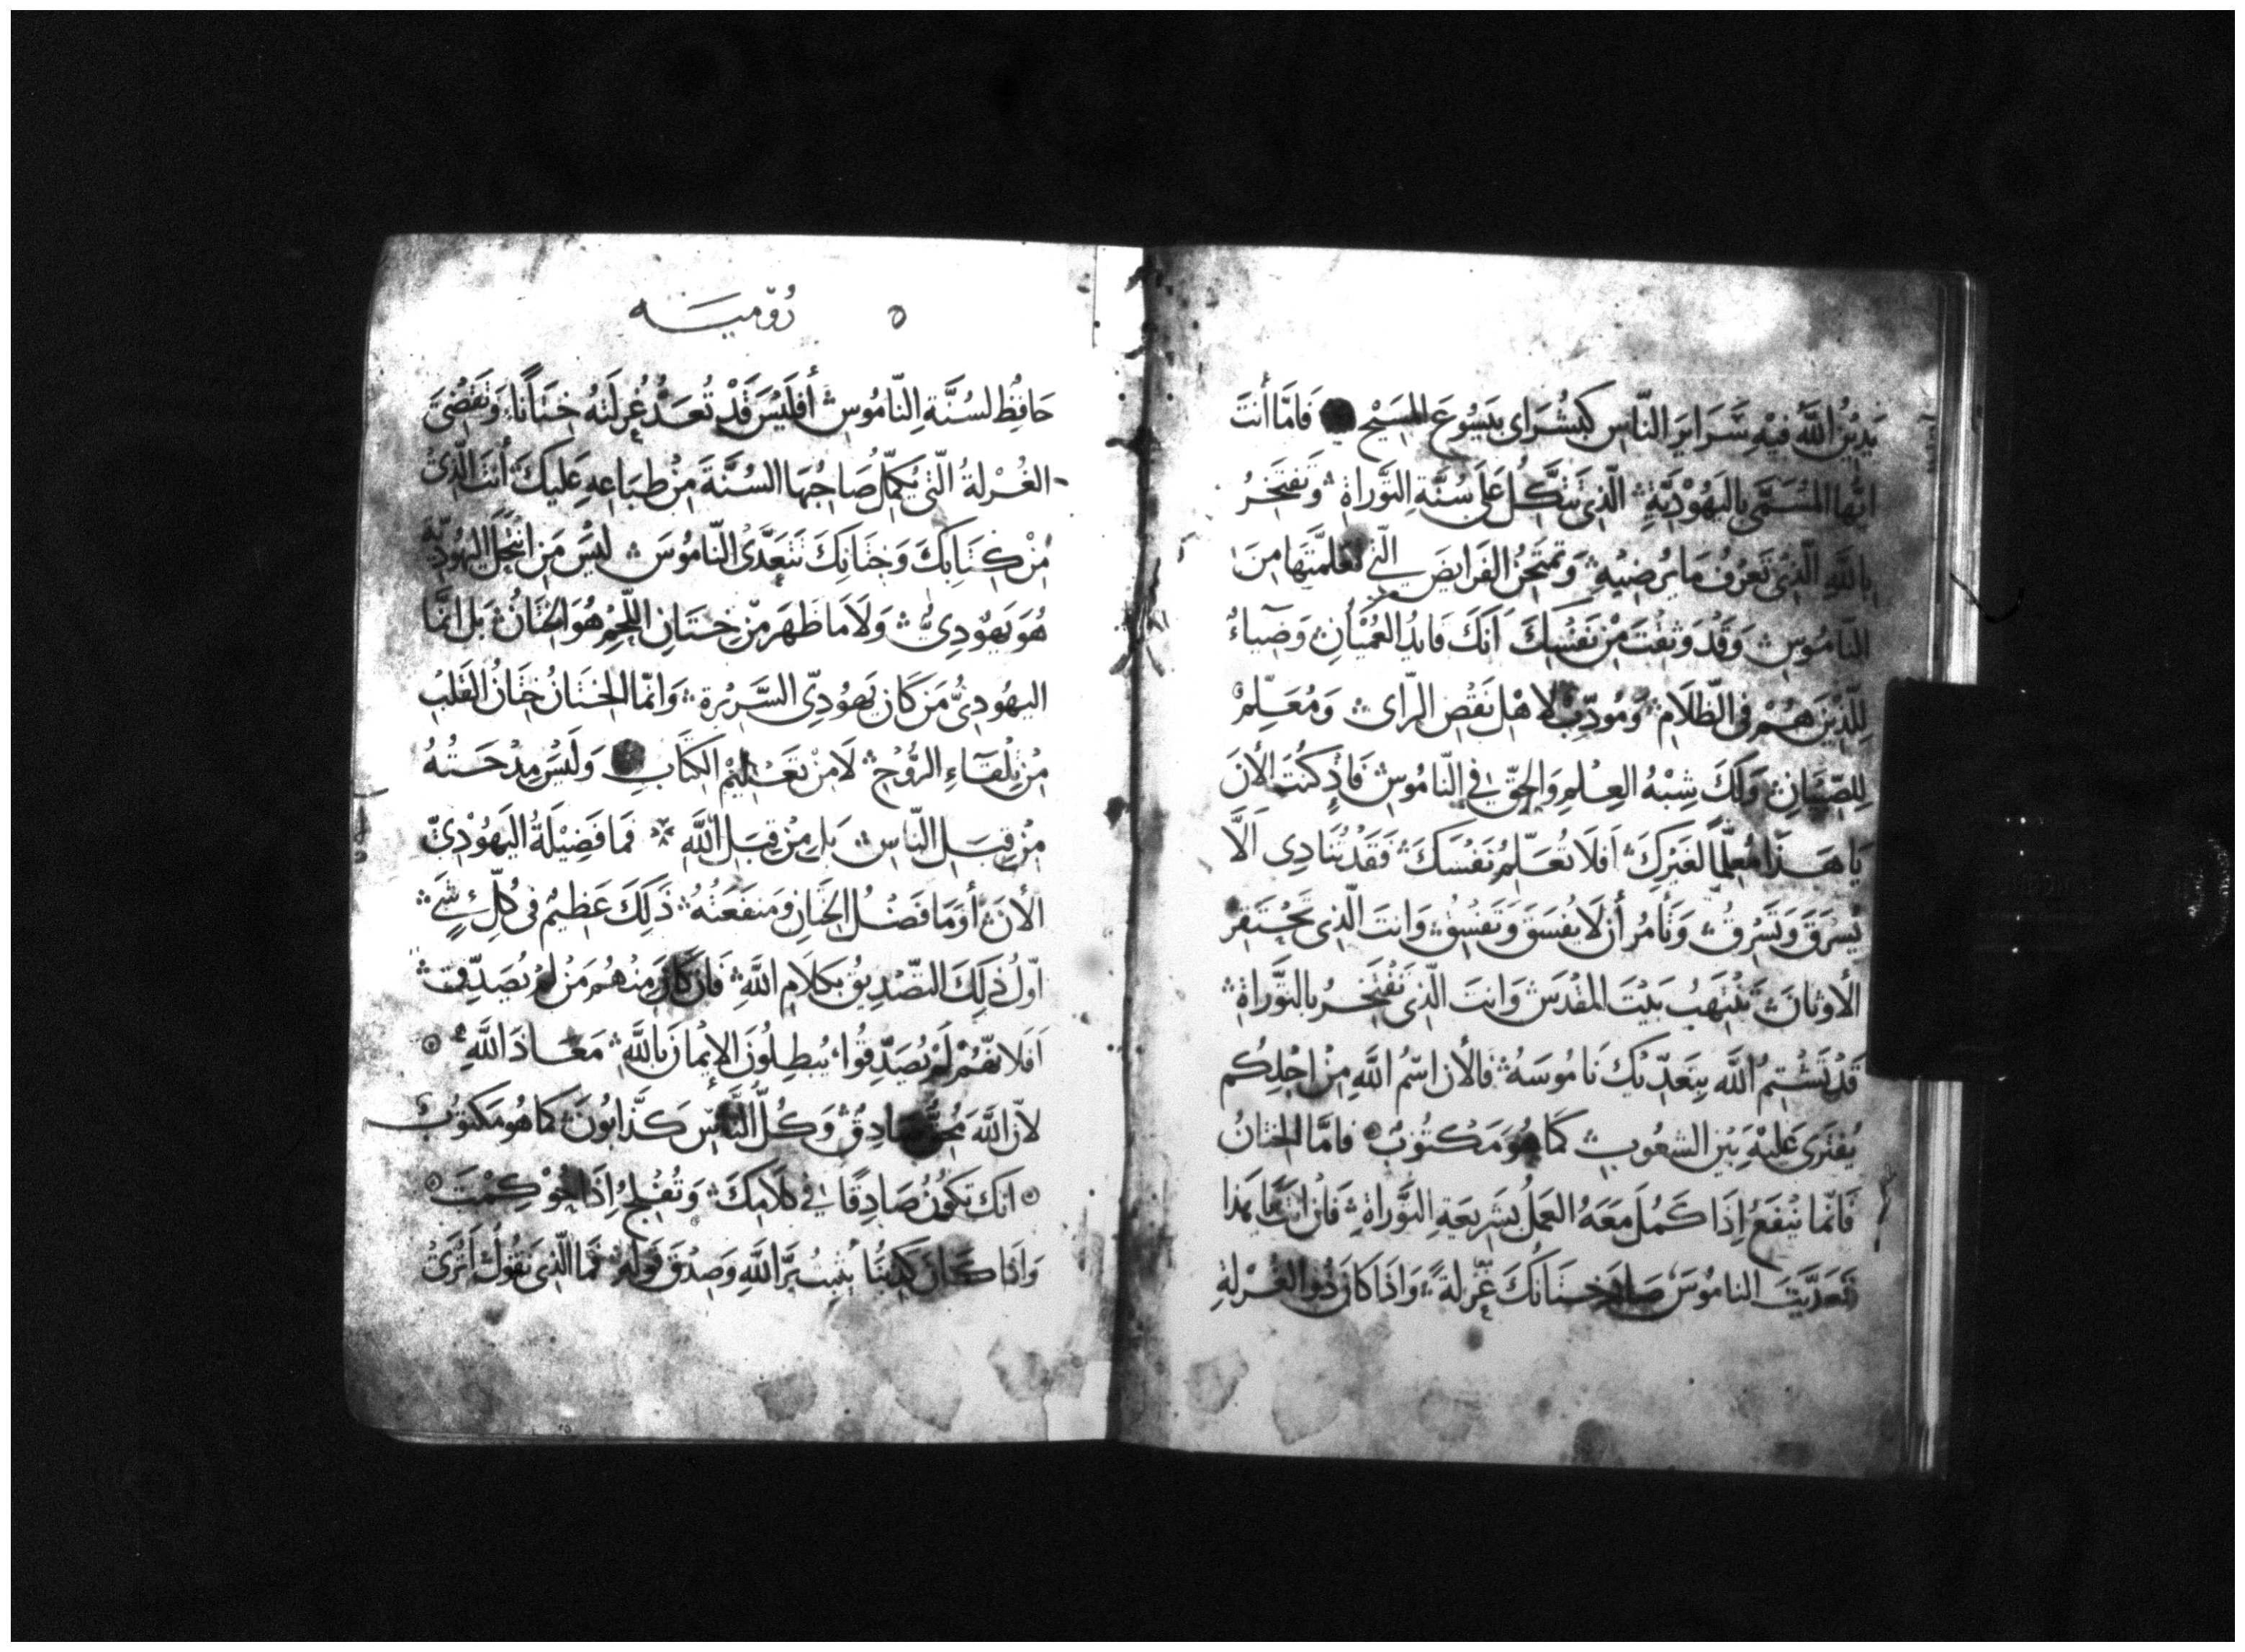 يَدِيْنُ اللَّهُ فِيْهِ سَرَايِرَ النَّاسِ كَبُشْرَاى بِيَسُوعَ المَسِيْحِ فَامَّا أَنتَ
ايُّهَا المُسَمَّى بِاليَهُوْدِيَّةِ الَّذِى يَتَّكِلُ عَلَى سُنَّةِ التَّوْرَاةِ وَتَفتَخِرُ
بِاللَّهِ الَّذِى تَعرُفُ مَا يُرضِيْهِ وَتَمتَحِنُ الفَرَايِضَ الَّتِى تَعَلَّمتَهَا مِنَ
النَّامُوسِ وَقَدْ وَثِقْتَ مِنْ نَفْسِكَ اَنَّكَ قَايدُ العُمْيَانِ وَضِيَاءُ
لِلَّذِيْنَ هُمْ فِى الظَّلَامِ وَمُودِّبُ لِاهْلِ نَقْصِ الرَّاى وَمُعَلِّمُ
لِلصِّبْيَانِ وَلَكَ شِبْهُ العِلْمِ وَالحَقِّ فِى النَّامُوسِ فَاذ كُنتَ الأنَ
يَا هَذَا مُعلِّماً لغَيْرِكَ اَفَلَا تُعَلِّمُ نَفْسَكَ فَقَدْ تُنَادِى اَلَّا
يُسرَقَ وَتَسْرِقُ وَتَأمُر أَن لَا يُفسَقَ وَتَفسُقُ وَانتَ الَّذِى تَحْتَقِرُ
الأوثَانَ تَنْتَهِبُ بَيْتَ المَقْدَسِ وَانتَ الَّذِى تَفْتَخِرُ بِالتَّوْرَاةِ
قَدْ تَشْتِمُ اللَّه بِتَعَدِّيْكَ نَامُوسَهُ فَالأن اسْمُ اللَّهِ مِنْ اجْلِكُم
يُفتَرَى عَليْهِ بَيْنَ الشعُوبِ كَمَا هُوَ مَكْتُوْبٌ فَامَّا الخِتَانُ
فَانَّمَا يَنْفَعُ إِذَا كَمُلَ مَعَهُ العَمَلُ بِشَرِيعَةِ التَّوْرَاةِ فَان انتَ يَا هَذا
تَعَدَّيْتَ النامُوسَ صَارَ خِتَانُكَ غُرْلَةً وَاذَا كَانَ ذُو الغُرْلَةِ
٥ رُوْميَــه
حَافِظ لسُنَّةِ النَّامُوسِ أَفَلَيْسَ قَدْ تُعَدُّ غُرلَتهُ خِتَاناً وَتَقْضِى
الغُرْلةُ الَّتِى يُكَمِّلُ صَاحِبُهَا السُنَّةَ مِنْ طِبَاعِهِ عَلَيكَ أَنتَ الَّذِى
مِنْ كِتَابِكَ وَخِتَانِكَ تَتَعَدَّى النَّامُوسَ لَيْسَ مَن انتَحَل اليهُودِيَّة
هُوَ يَهُودِىّ وَلَا مَا ظَهَر مِنْ خِتَانِ اللَّحْمِ هُوَ الخِتَانُ بَل انمَّا
اليهُودِىُّ مَن كَانَ يَهُودِىَّ السَّرِيْرة وَانَّمَا الخِتَانُ خِتَانُ القَلبِ
مِنْ تِلْقَاءِ الرُّوْحِ لَا مِنْ تَعْلِيْمِ الكِتَابِ وَلَيْسَ مِدْحَتُهُ
مِنْ قِبَلِ النَّاسِ بَل مِنْ قِبَلِ اللَّهِ فَمَا فَضِيْلَةُ اليَهُوْدِىّ
الأنَ أو مَا فَضْلُ الخِتَانِ وَمَنفَعَتُهُ ذَلِكَ عَظيْمٌ فِى كُلِّ شَىٍ
اوّلُ ذَلِكَ التصْدِيقُ بِكَلَامِ اللَّهِ فَان كَانَ مِنْهُم مَنْ لَمْ يُصَدِّقْ
اَفَلِانَّهُمْ لَمْ يُصَدِّقُوا يُبطِلُونَ الإِيمَانَ بِاللَّهِ مَعَاذَ اللَّهِ
لانَّ اللَّهَ مُحِقٌّ صَادِقٌ وَكُلُّ النَّاسِ كَذَّابُونَ كَما هُو مَكتوبٌ
انَّكَ تكُونُ صَادِقًا فِى كَلَامِكَ وَتُفْلِجُ إِذَا حُوْكِمْتَ
وَاذَا كَانَ كَذِبُنَا يُثبِتُ بِرَّ اللَّهِ وَصِدْقَ قَولِهِ فَمَا الَّذِى نَقُولُ اَتُرَى